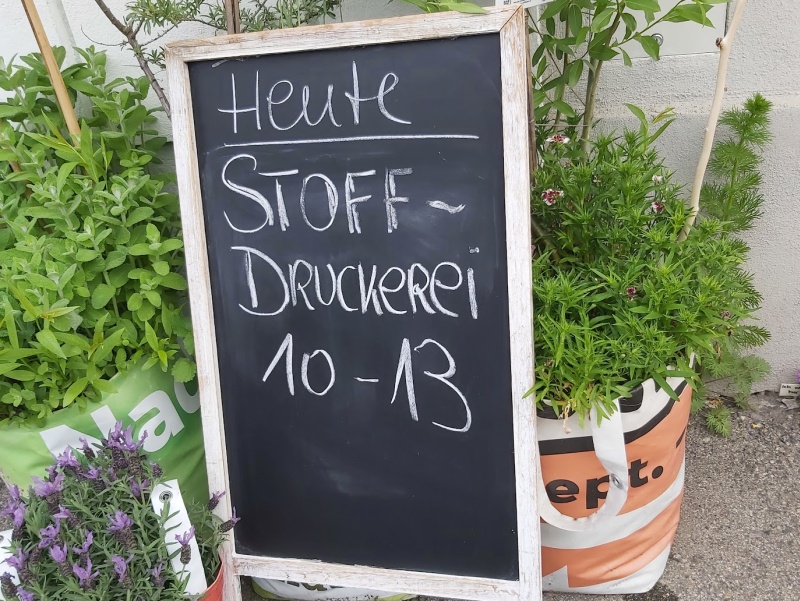 Heute
STOFF-
DRUCKEREi
10-13
Na
ept.